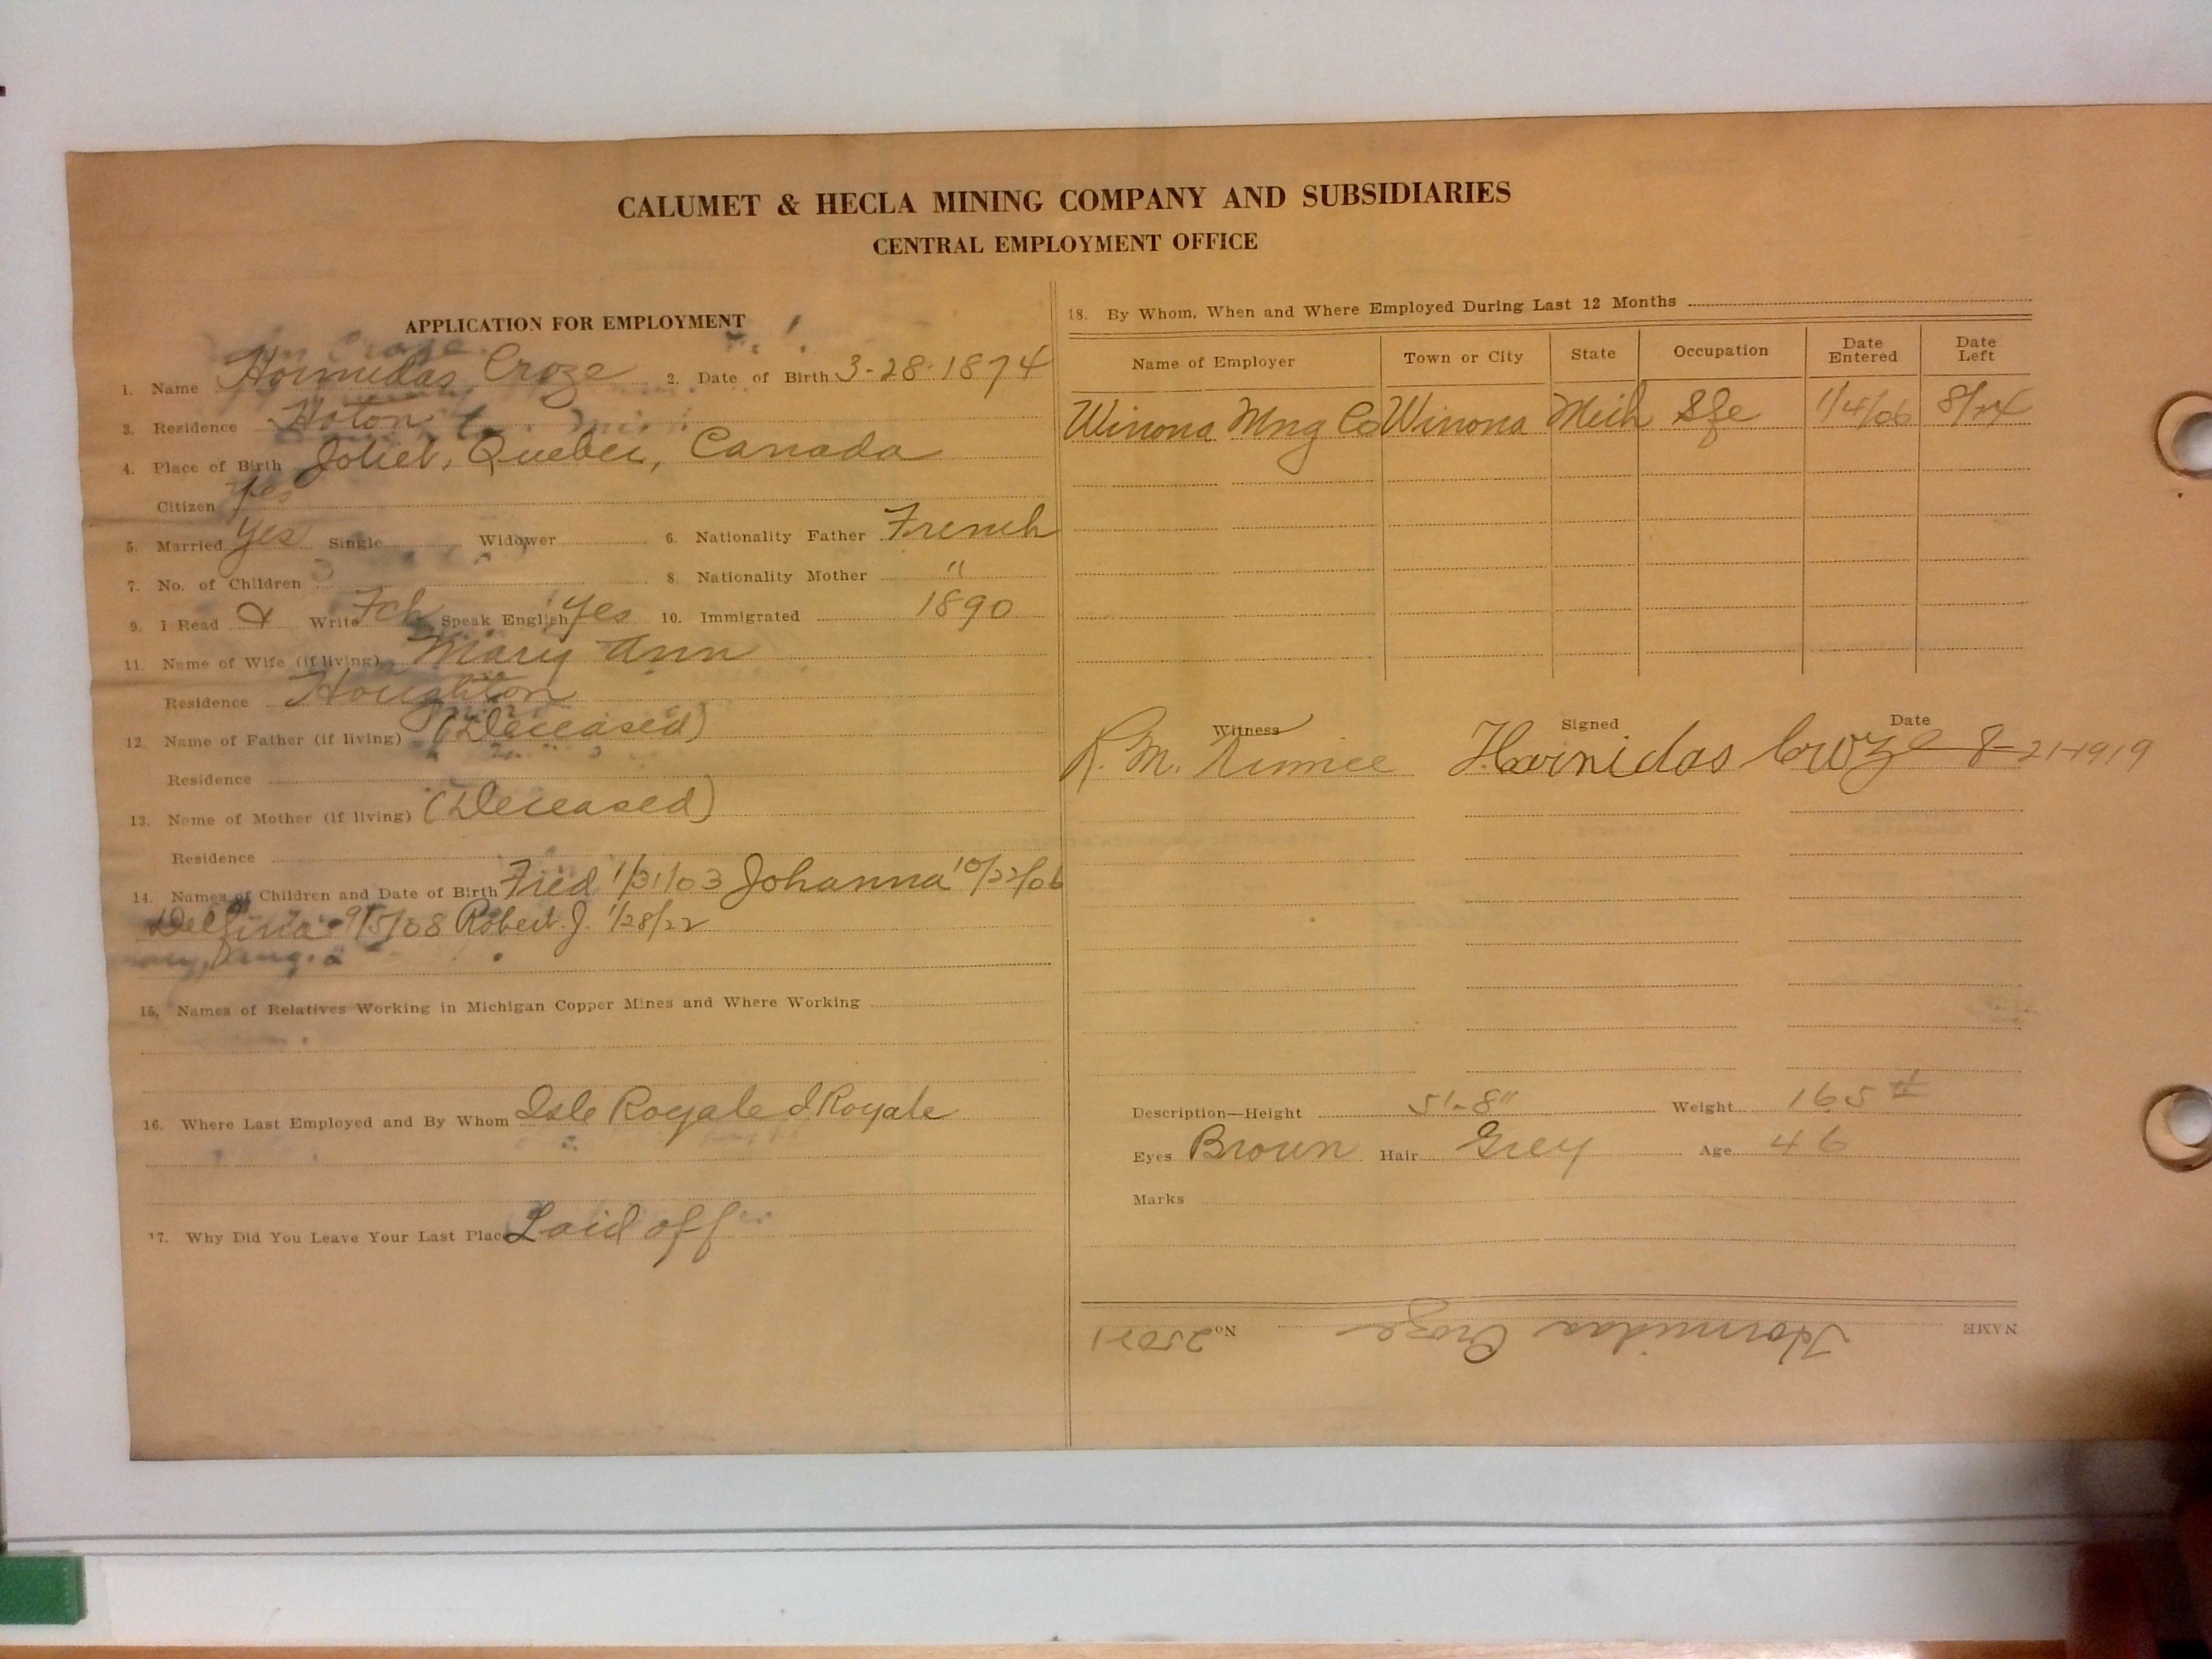 CALUMET & HECLA MINING COMPANY AND SUBSIDIARIES
CENTRAL EMPLOYMENT OFFICE
APPLICATION FOR EMPLOYMENT
1. Name Hormidas Croze 2. Date of Birth 3-28-1874
3. Residence Hoton
4. Place of Birth Joliet, Quebec, Canada
Citizen Yes
5. Married Yes Single Widower 6. Nationality Father French
7. No. of Children 3 8. Nationality Mother "
9. I Read & Write Fch Speak English Yes 10. Immigrated 1890
11. Name of Wife (if living) Mary Ann
Residence Houghton
12. Name of Father (if living) (Deceased)
Residence
13. Name of Mother (if living) (Deceased)
Residence
14. Names of Children and Date of Birth Fred 1/31/03 Johanna 10/22/06
Delfina 9/5/08 Robert J. 1/28/22
15. Names of Relatives Working in Michigan Copper Mines and Where Working
16. Where Last Employed and By Whom Isle Royale I Royale
17. Why Did You Leave Your Last Place Laid off
18. By Whom, When and Where Employed During Last 12 Months
Name of Employer Town or City State Occupation Date Entered Date Left
Winona Mng Co Winona Mich Sfe 1/4/06 8/24
Witness Signed Date
R. M. Hornidas Croze 8-21-1919
Description—Height 5'-8" Weight 165 #
Eyes Brown Hair Grey Age 46
Marks
NAME Hormidas Croze No. 25071